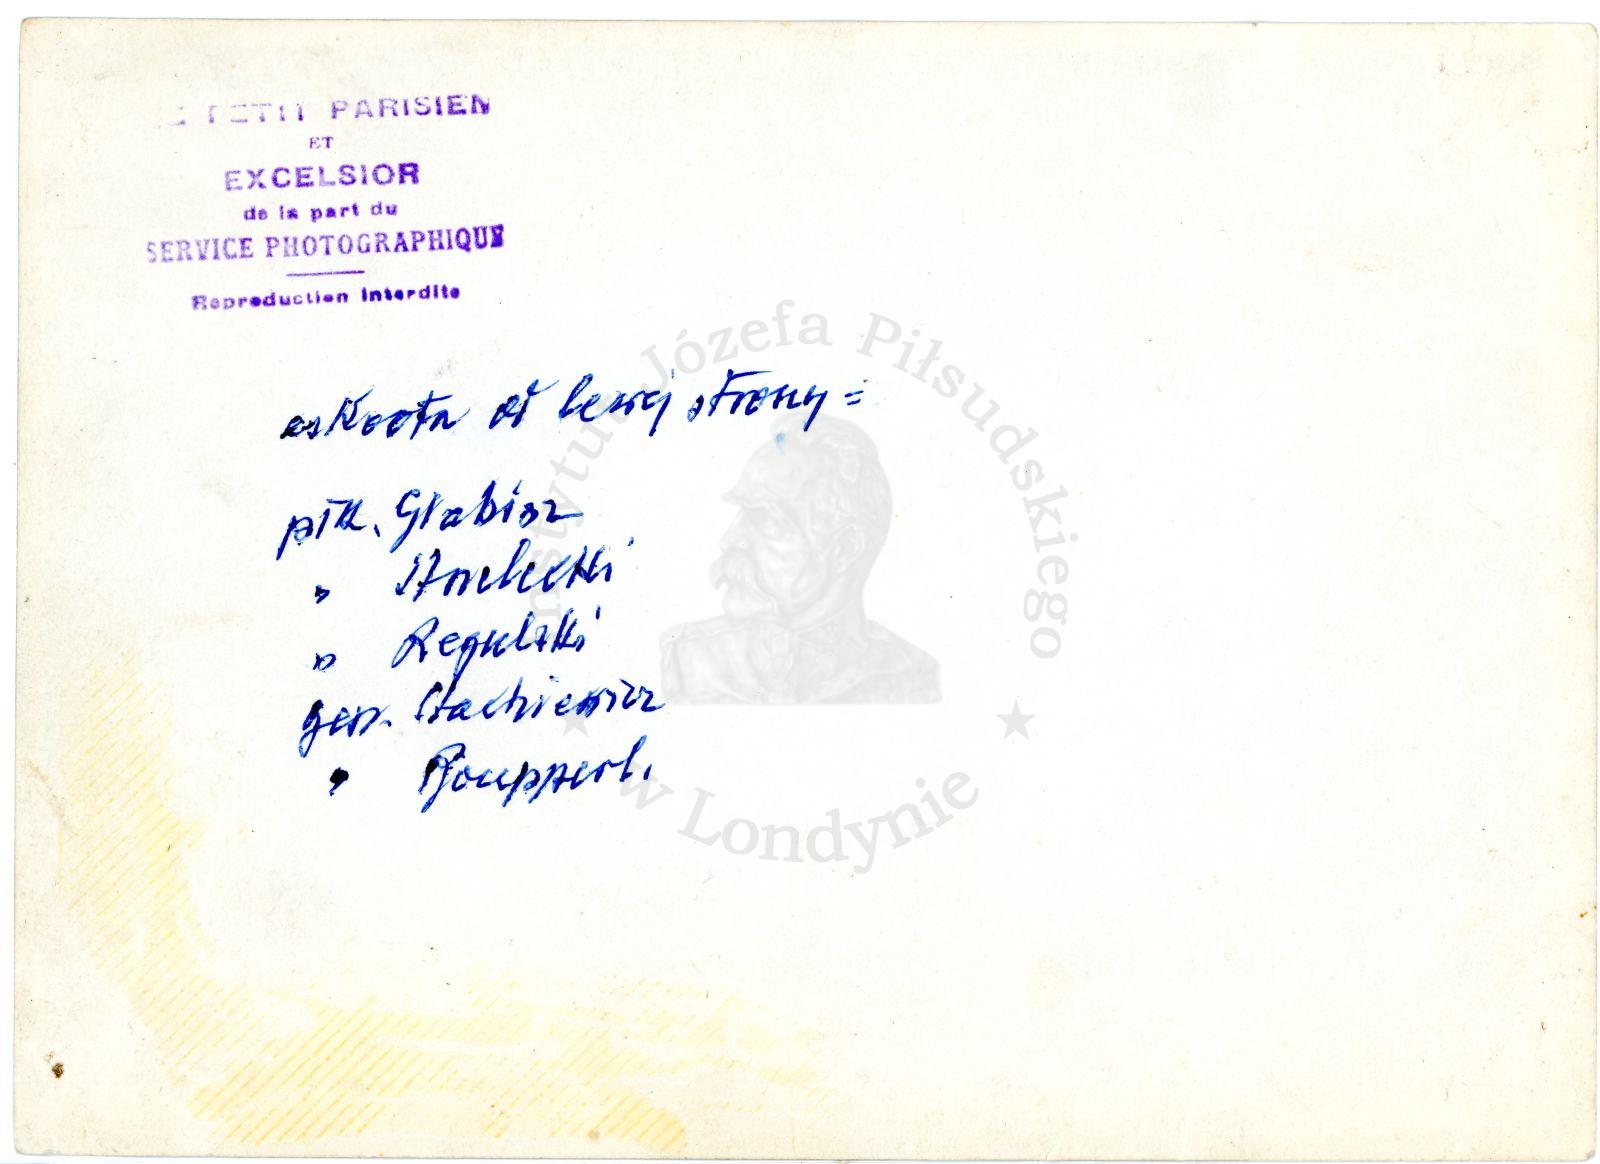 LE PETIT PARISIEN
ET
EXCELSIOR
de la part du
SERVICE PHOTOGRAPHIQUE
Reproduction Interdite
Instytut Józefa Piłsudskiego
w Londynie
eskorta od lewej strony =
płk. Glabisz
" Strzelecki
" Regulski
gen. Stachiewicz
" Rouppert.